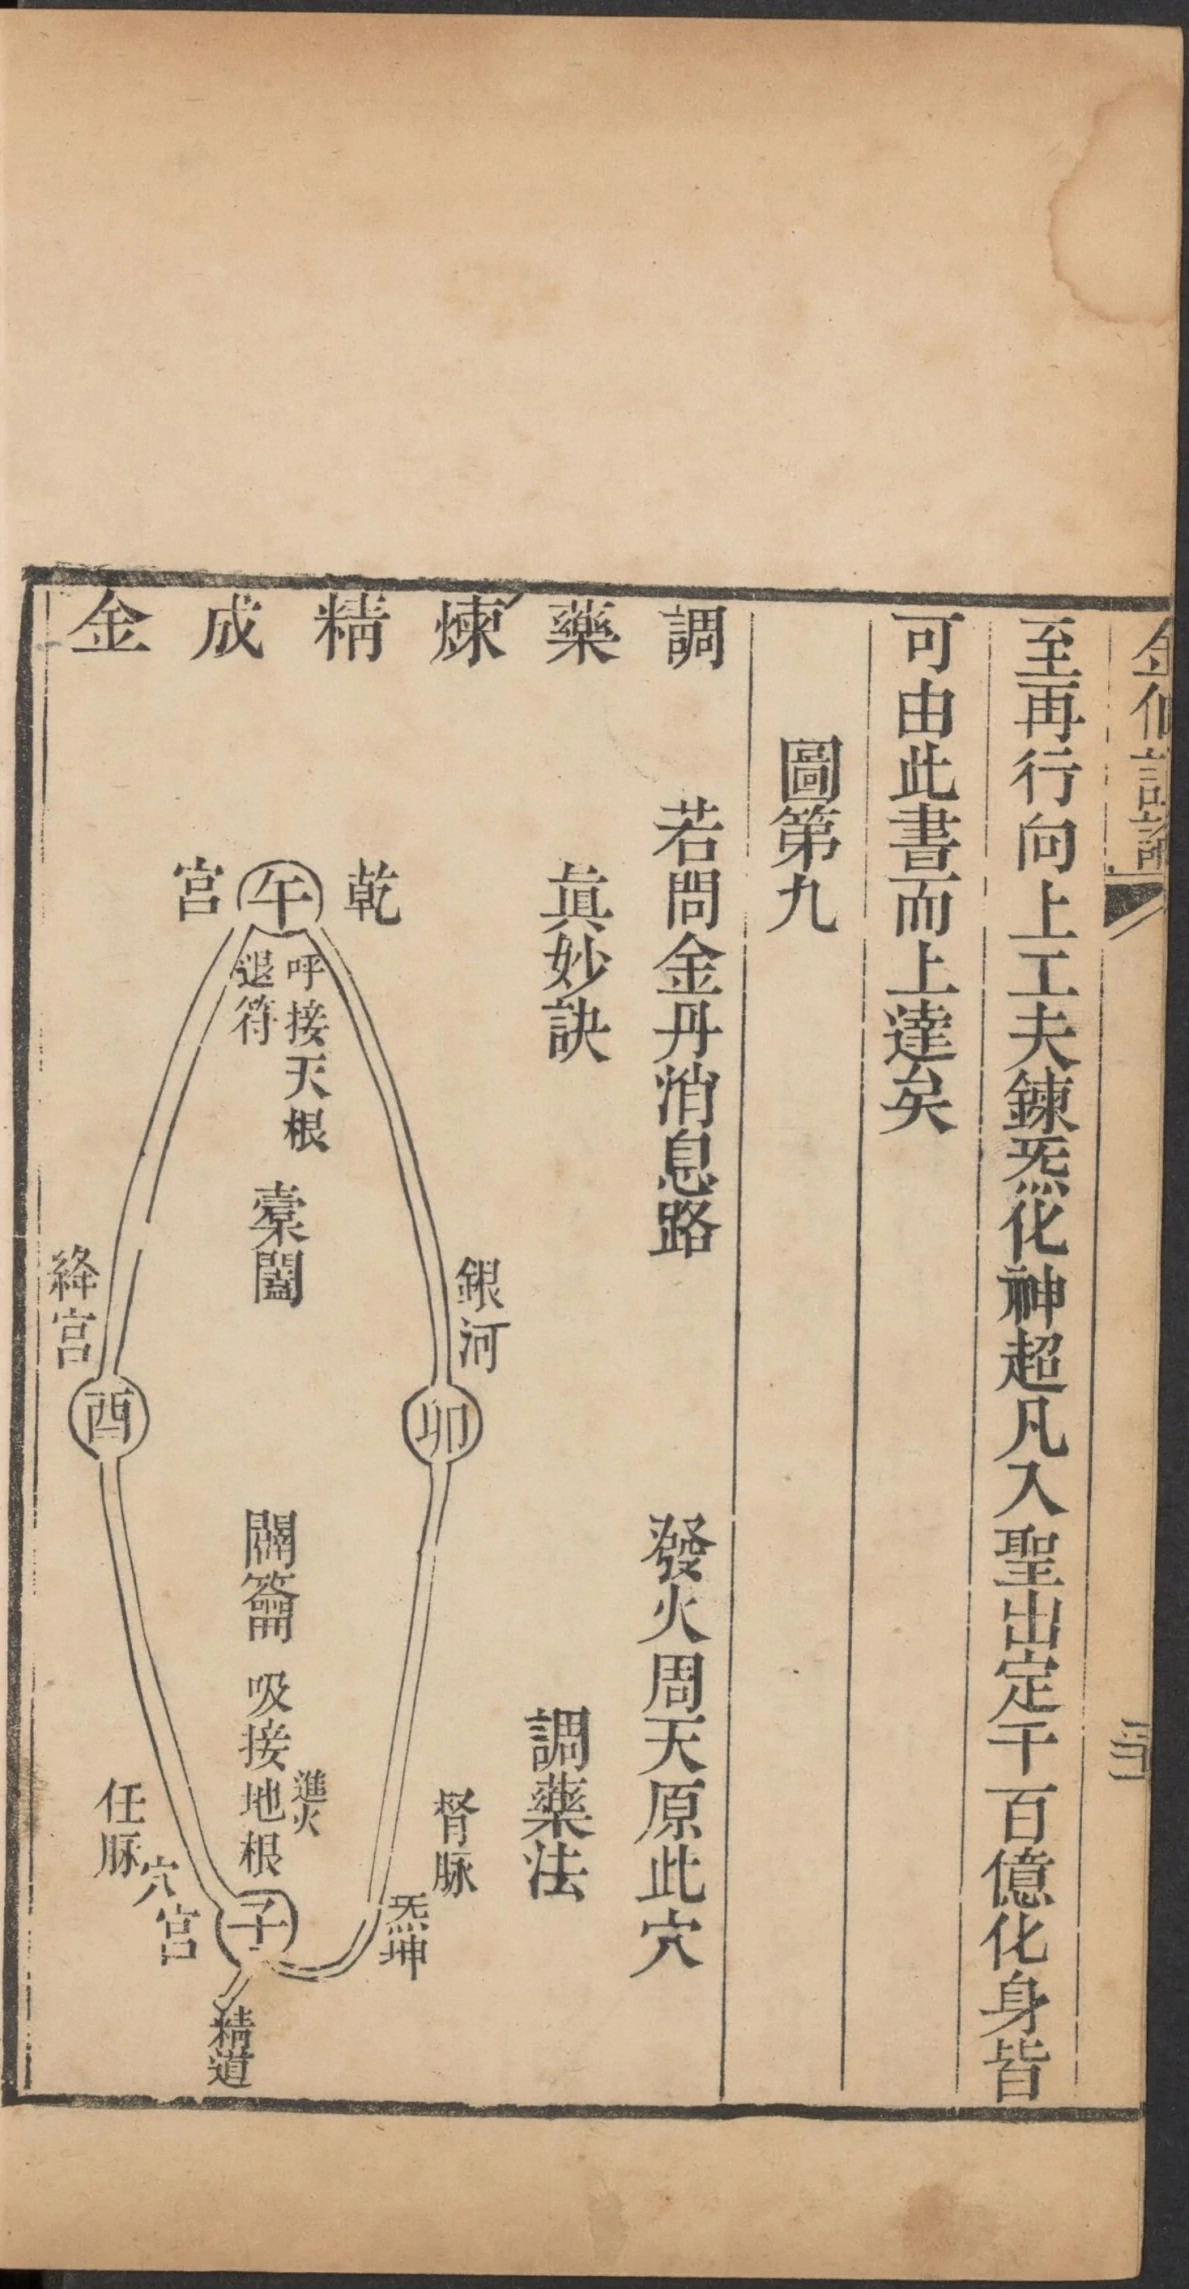 金仙證論
至再行向上工夫鍊炁化神超凡入聖出定千百億化身皆
可由此書而上達矣
圖第九
調藥煉精成金
若問金丹消息路
發火周天原此穴
眞妙訣
調藥法
乾
午
宮
呼接天根
退符
橐闔
銀河
卯
絳宮
酉
闢籥
吸接地根
進火
督脉
任脉
炁坤
子
穴宮
精道